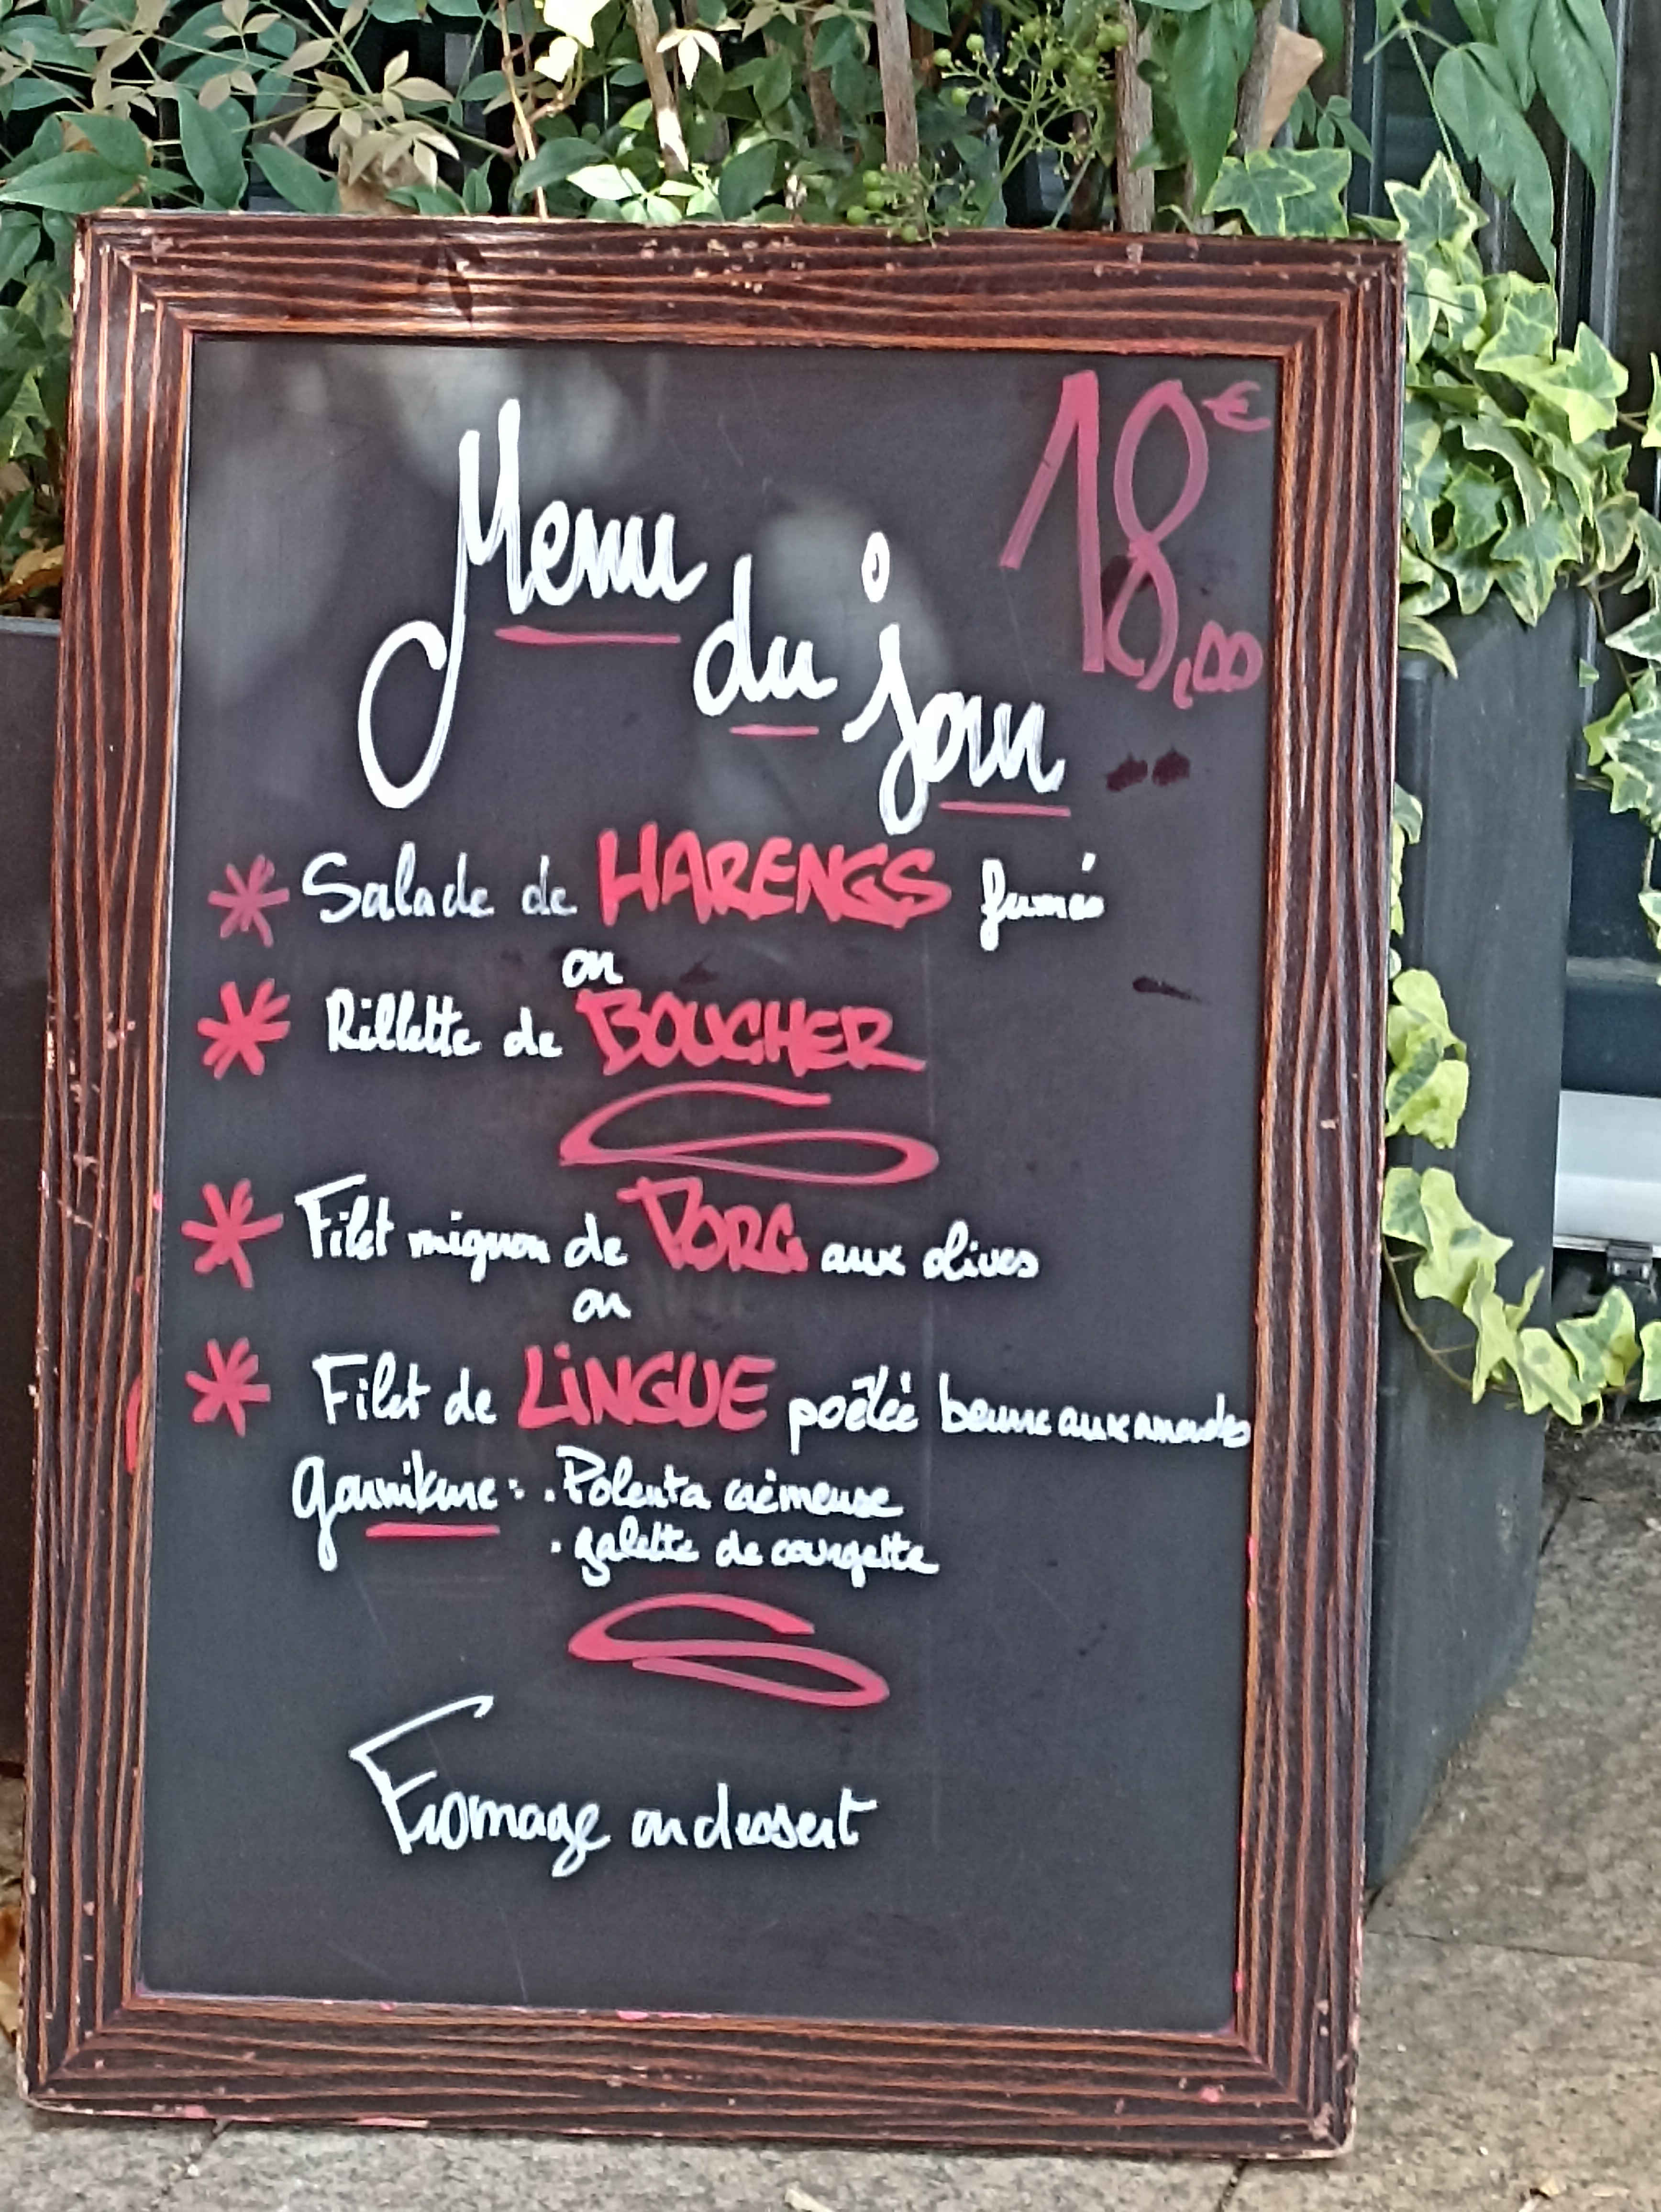 18€,00
Menu
du jour
* Salade de HARENGS fumés
ou
* Rillette de BOUCHER
* Filet mignon de PORC aux olives
ou
* Filet de LINGUE poêlée beurre aux amandes
garniture : . Polenta crèmeuse
. galette de courgette
Fromage ou dessert